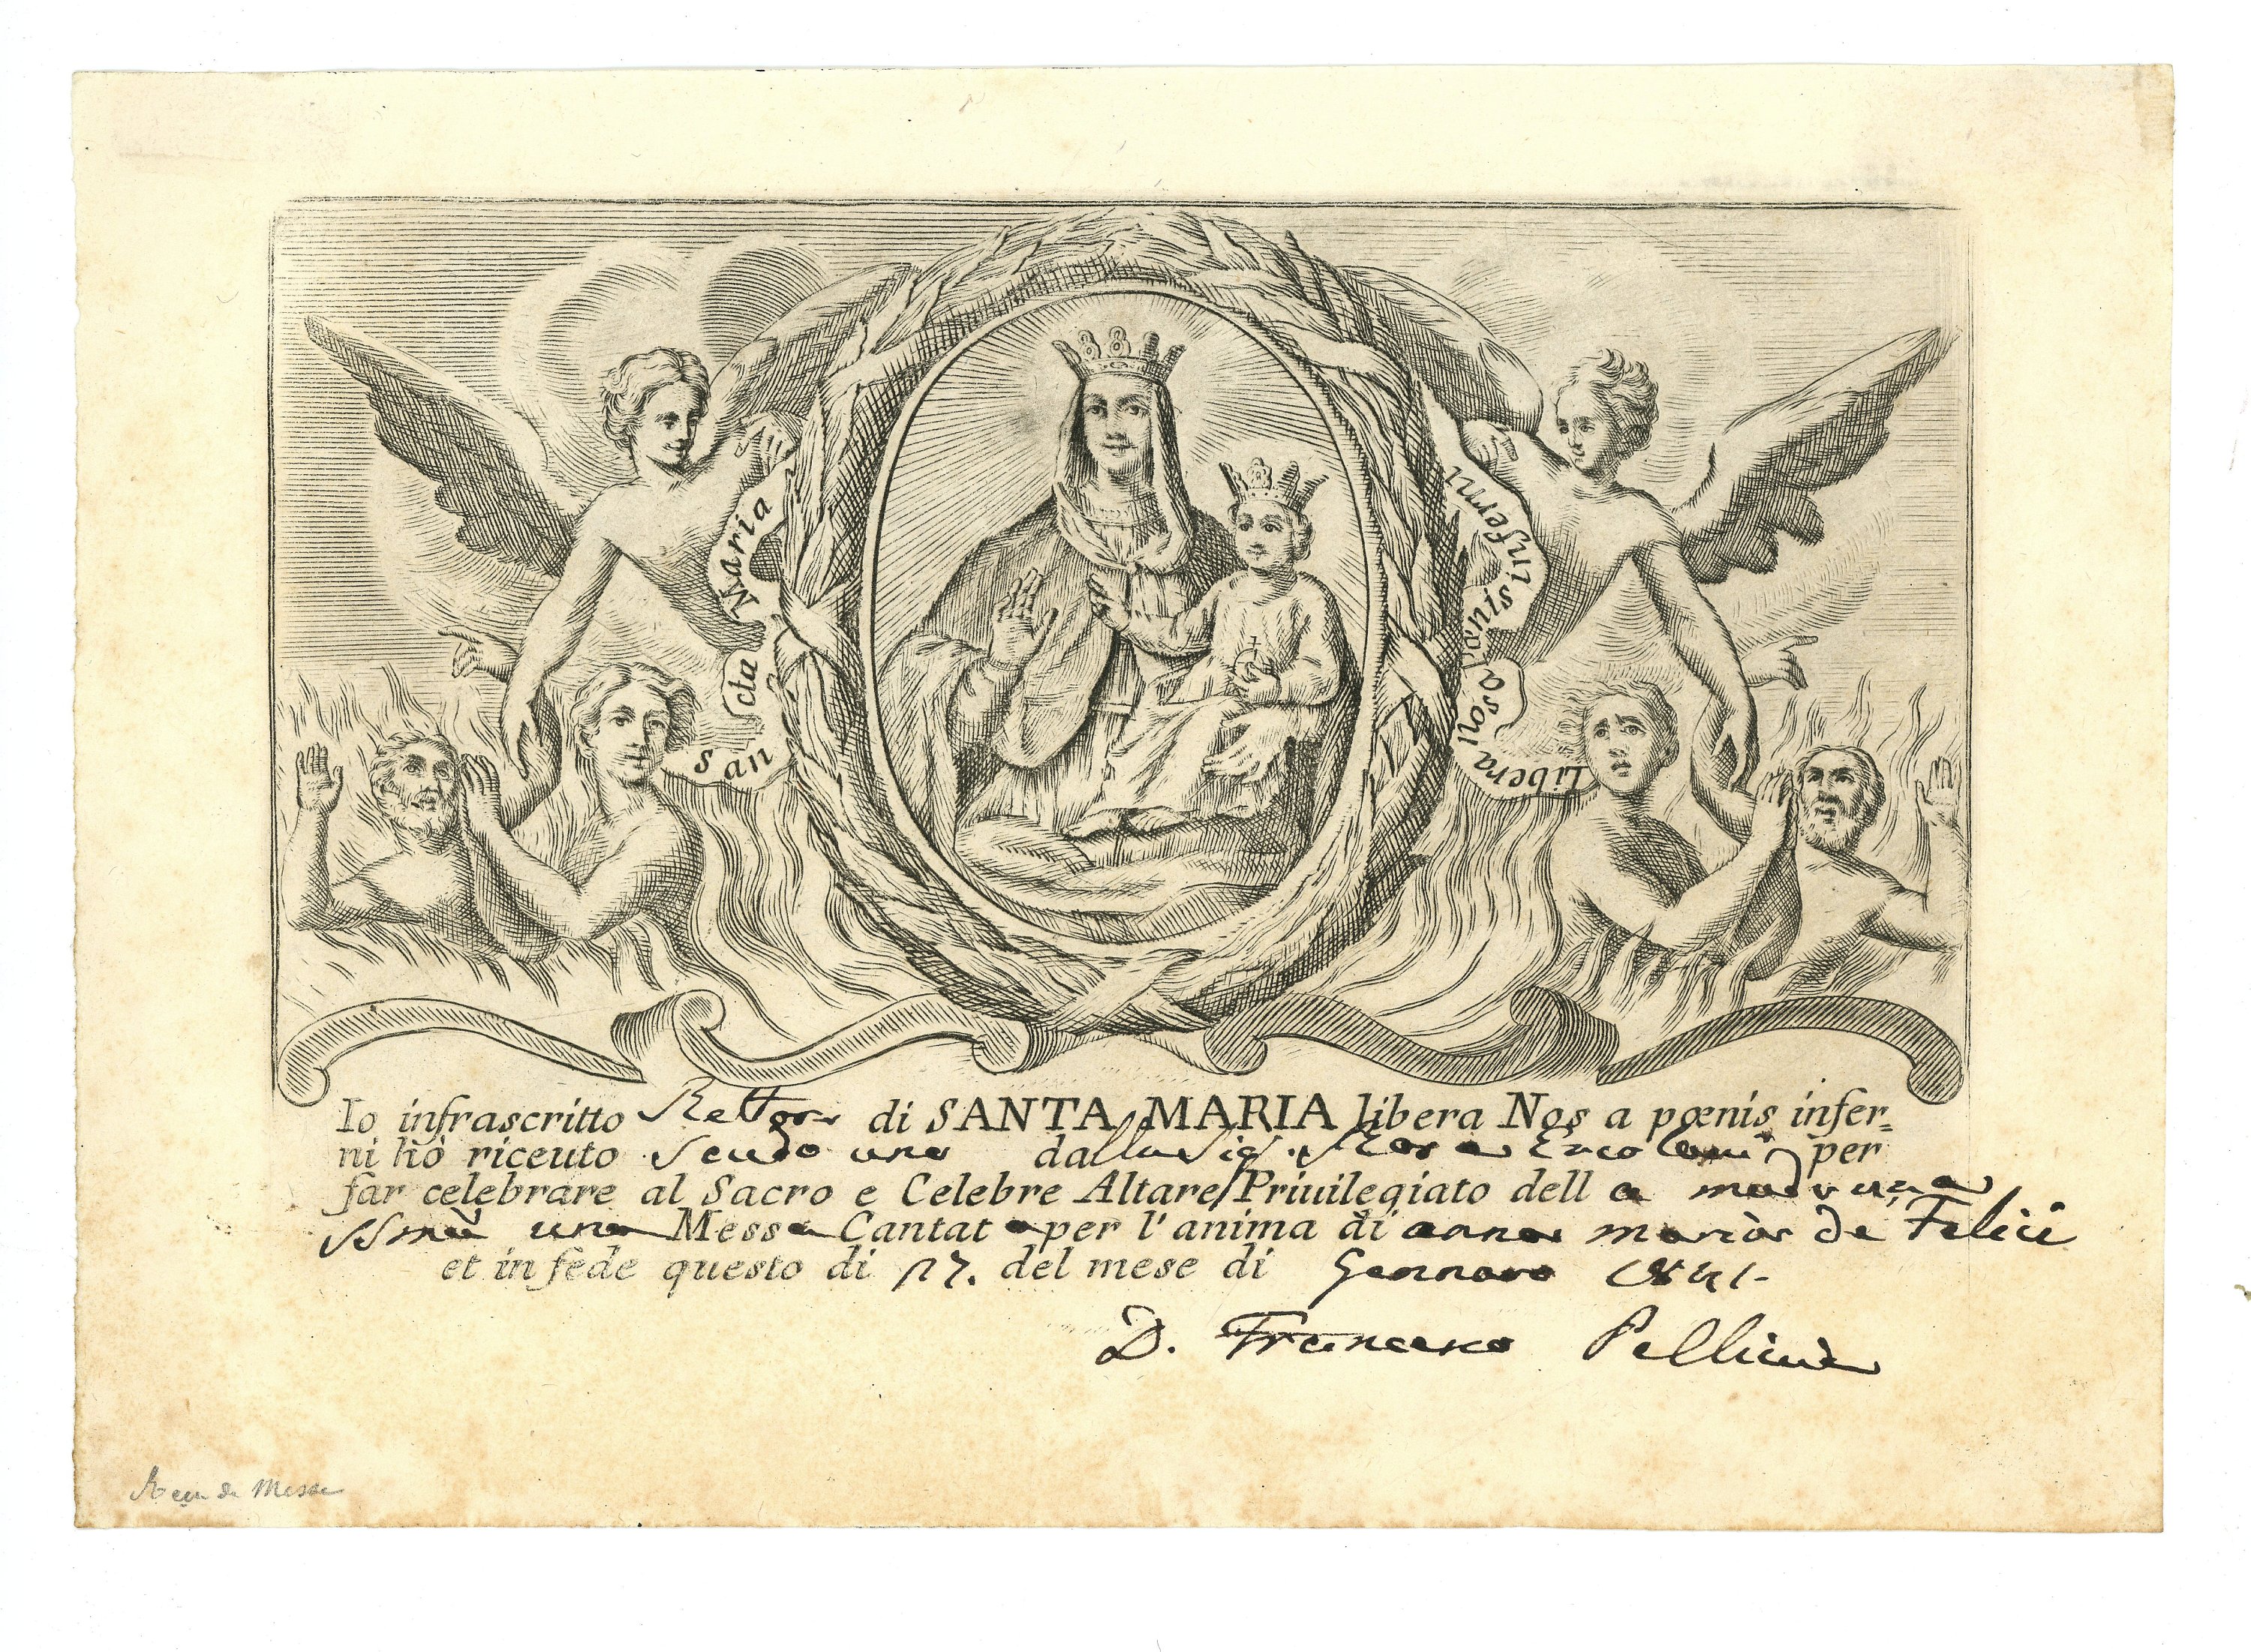 San cta Maria
Libera nos a pœnis inferni
Io infrascritto Rettore di SANTA MARIA libera Nos a pœnis infer=
ni hò riceuto Scudo uno dalla Sig. Rosa Ercolani per
far celebrare al Sacro e Celebre Altare Priuilegiato dell a madonna
SSma una Messa Cantat a per l'anima di anna maria de Felici
et in fede questo di 17. del mese di Gennaro 1841-
D. Francesco
Reçu de Messe